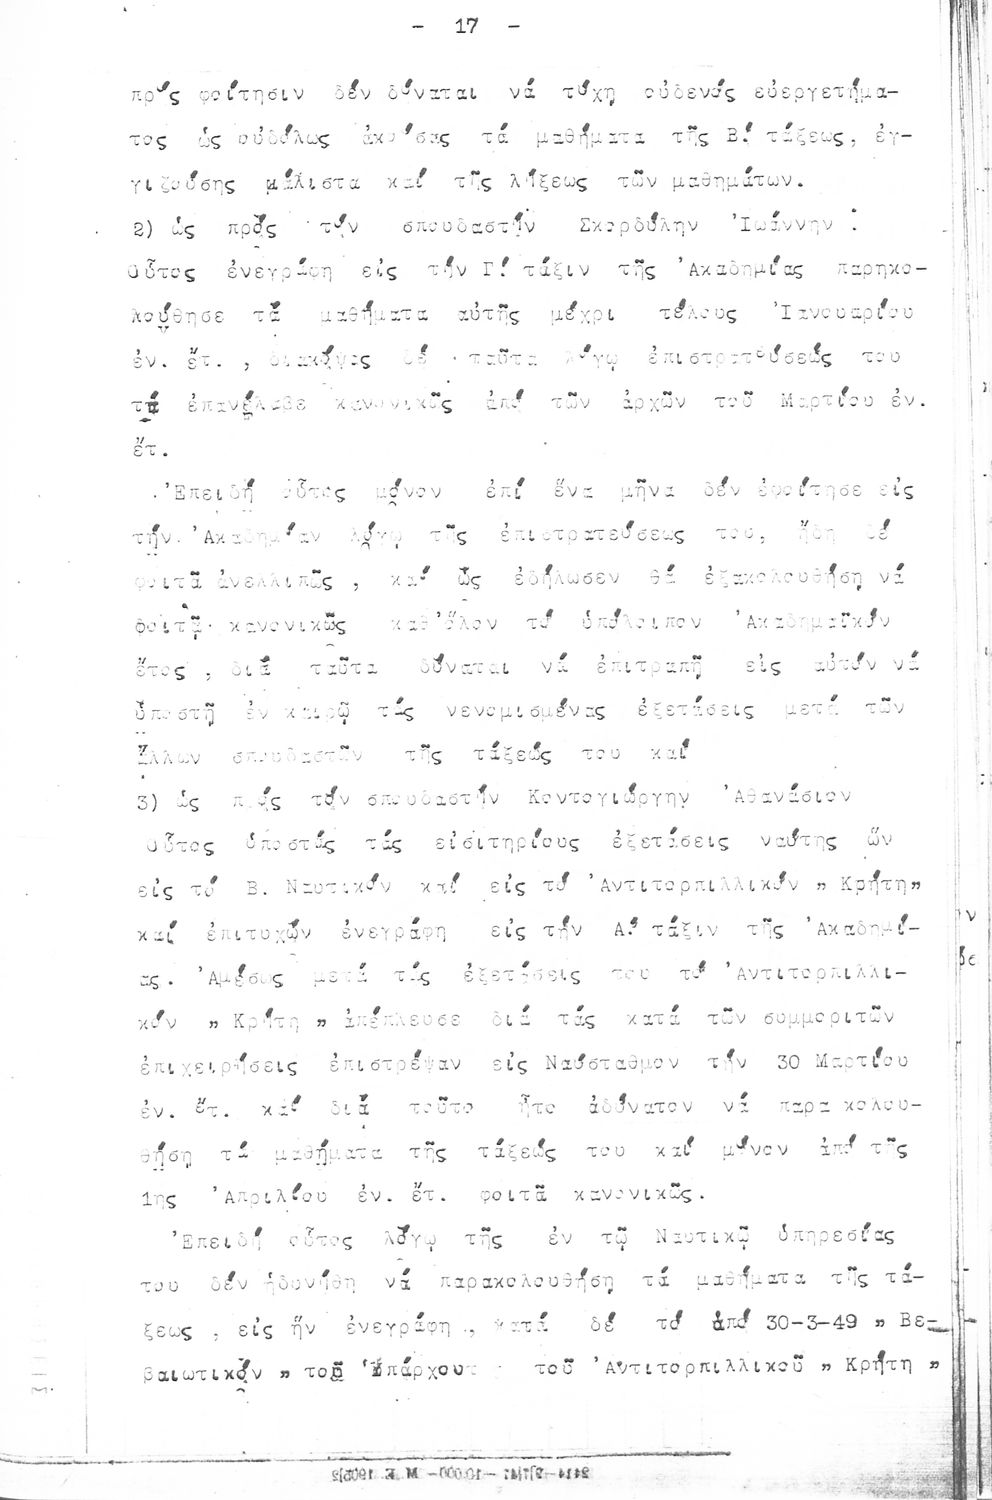 - 17 -
πρός φοίτησιν δέν δύναται νά τύχη οὐδενός εὐεργετήμα-
τος ὡς οὐδόλως ἀκούσας τά μαθήματα τῆς Β! τάξεως, ἐγ-
γιζούσης μάλιστα καί τῆς λήξεως τῶν μαθημάτων.
2) ὡς πρός τήν σπουδαστήν Σκορδύλην 'Ιωάννην :
Οὗτος ἐνεγράφη εἰς τήν Γ! τάξιν τῆς 'Ακαδημίας παρηκο-
λούθησε τά μαθήματα αὐτῆς μέχρι τέλους 'Ιανουαρίου
ἐν. ἔτ. , διακόψας δέ ταῦτα λόγῳ ἐπιστρατεύσεώς του
τά ἐπανέλαβε κανονικῶς ἀπό τῶν ἀρχῶν τοῦ Μαρτίου ἐν.
ἔτ.
'Επειδή οὗτος μόνον ἐπί ἕνα μῆνα δέν ἐφοίτησε εἰς
τήν 'Ακαδημίαν λόγῳ τῆς ἐπιστρατεύσεως του, ἤδη δέ
φοιτᾶ ἀνελλιπῶς , καί ὡς ἐδήλωσεν θά ἐξακολουθήση νά
φοιτᾷ κανονικῶς καθ'ὅλον τό ὑπόλοιπον 'Ακαδημαϊκόν
ἔτος , διά ταῦτα δύναται νά ἐπιτραπῆ εἰς αὐτόν νά
ὑποστῆ ἐν καιρῷ τάς νενομισμένας ἐξετάσεις μετά τῶν
ἄλλων σπουδαστῶν τῆς τάξεώς του καί
3) ὡς πρός τόν σπουδαστήν Κοντογιώργην 'Αθανάσιον
Οὗτος ὑποστάς τάς εἰσιτηρίους ἐξετάσεις ναύτης ὤν
εἰς τό Β. Ναυτικόν καί εἰς τό 'Αντιτορπιλλικόν „ Κρήτη„
καί ἐπιτυχών ἐνεγράφη εἰς τήν Α! τάξιν τῆς 'Ακαδημί-
ας. 'Αμέσως μετά τάς ἐξετάσεις του τό 'Αντιτορπιλλι-
κόν „ Κρήτη „ ἀπέπλευσε διά τάς κατά τῶν συμμοριτῶν
ἐπιχειρήσεις ἐπιστρέψαν εἰς Ναύσταθμον τήν 30 Μαρτίου
ἐν. ἔτ. καί διά τοῦτο ἦτο ἀδύνατον νά παρα κολου-
θήση τά μαθήματα τῆς τάξεώς του καί μόνον ἀπό τῆς
1ης 'Απριλίου ἐν. ἔτ. φοιτᾶ κανονικῶς.
'Επειδή οὗτος λόγῳ τῆς ἐν τῷ Ναυτικῷ ὑπηρεσίας
του δέν ἠδυνήθη νά παρακολουθήση τά μαθήματα τῆς τά-
ξεως , εἰς ἥν ἐνεγράφη , κατά δέ τό ἀπό 30-3-49 „ Βε-
βαιωτικόν „ τοῦ Ὑπάρχου τοῦ 'Αντιτορπιλλικοῦ „ Κρήτη „